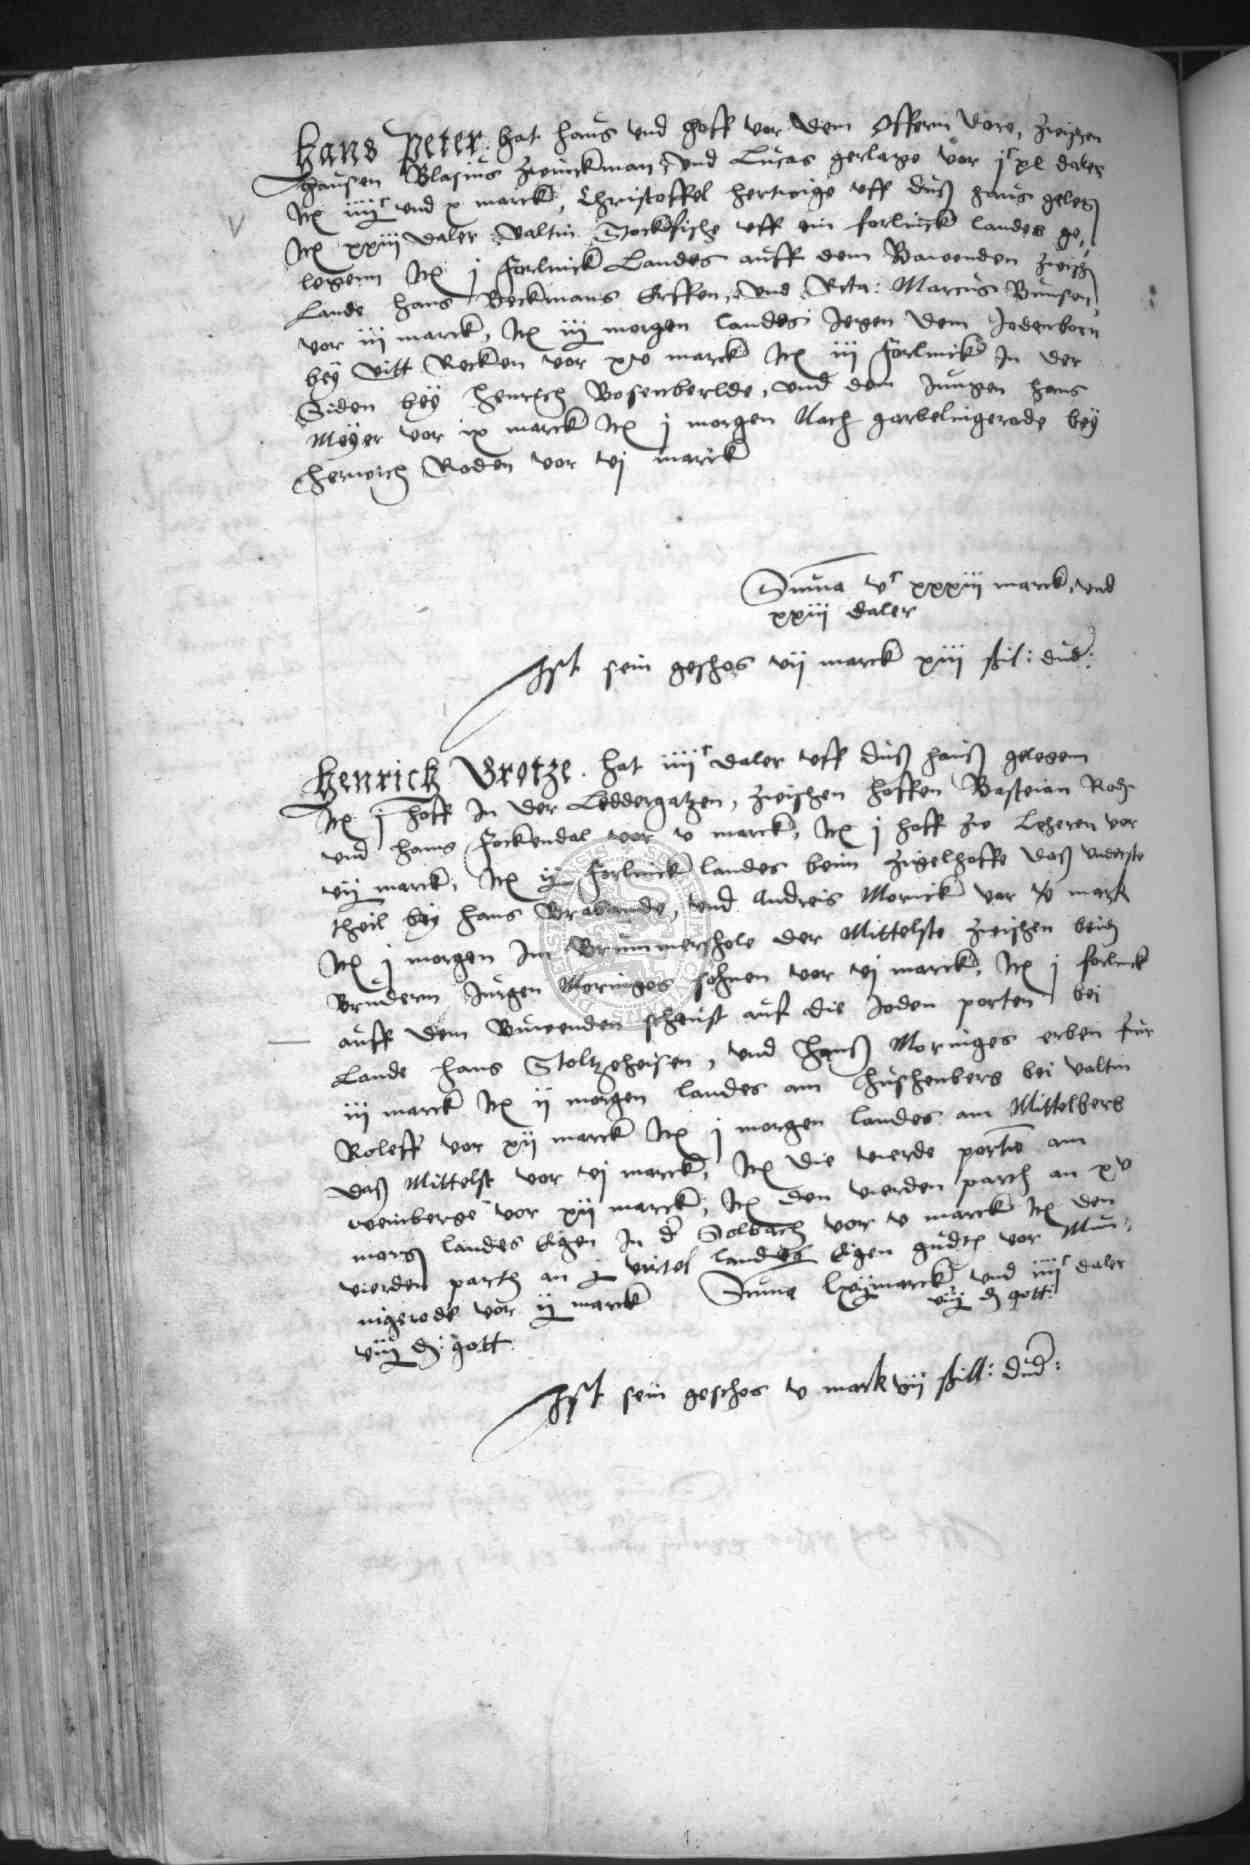 Hans Peter. hat haus vnd hoff vor dem Offern dore, zwischen
hausen Blasius zwinckman, vnd Lucas gerlage vor jc xl daler
Itē iiijc vnd x marck, Christoffel hertwige vff duß haus gelegē
V
Itē xxiij daler Valtin Stockfische vff ein forlinck landes ge,
legenn Itē j Forlinck Landes auff dem Bawenden zwischē
Lande hans Beckmans Erffen, vnd Marcus Bunsen,
vor iij marck, Itē iij morgen landes Jegen dem Jodenborn
bey Vitt Recken vor xv marck Itē iij Forlinck In der
Siden bey Henrich Bosenberlde, vnd dem Jungen hans
Meyer vor ix marck Itē j morgen Nach garbelingerode bey
Henrich Roden vor vj marck
Suma vc xxxiij marck, vnd
xxiij daler
Ist sein geschos vij marck xiij ßil: dud:
Henrich Bretze. hat iiijc daler vff duß hauß gelegem
Itē j hoff In der Leddergatzen, zwischen hoffen Basteian Rodē
vnd hans Fockendal vor v marck, Itē j hoff zw Leheren vor
vij marck, Itē ij Forlinck landes beim zigelhoffe daß vnderste
theil bey hans Brabande, vnd Andreis Mornick vor marck
Itē j morgen Im Brummershole der Mittelste zwischen beidē
Brudern Jurgen Moringes sohnen vor vj marck, Itē j forlinck
auff dem Buwenden scheust auf die Joden porten bei
Lande hans Stoltzeheisen, vnd Hanß Moringes erben fur
iij marck Itē ij morgen landes am Huschenberg bei Valtin
Roleff vor xij marck Itē j morgen landes am Mittelberg
daß Mittelst vor vj marck, Itē die vierde portio am
weinberge vor xij marck, Itē den vierden parth an xv
morgē landes Eigen In d Solbach vor v marck Itē den
vierden parth an virtel landes Eigen gudts vor Mun,
nigerode vor ij marck Suma marck vnd iiijc daler
viij d gott:
viij d: gott.
Ist sein geschos v mark vij ßill: dud: